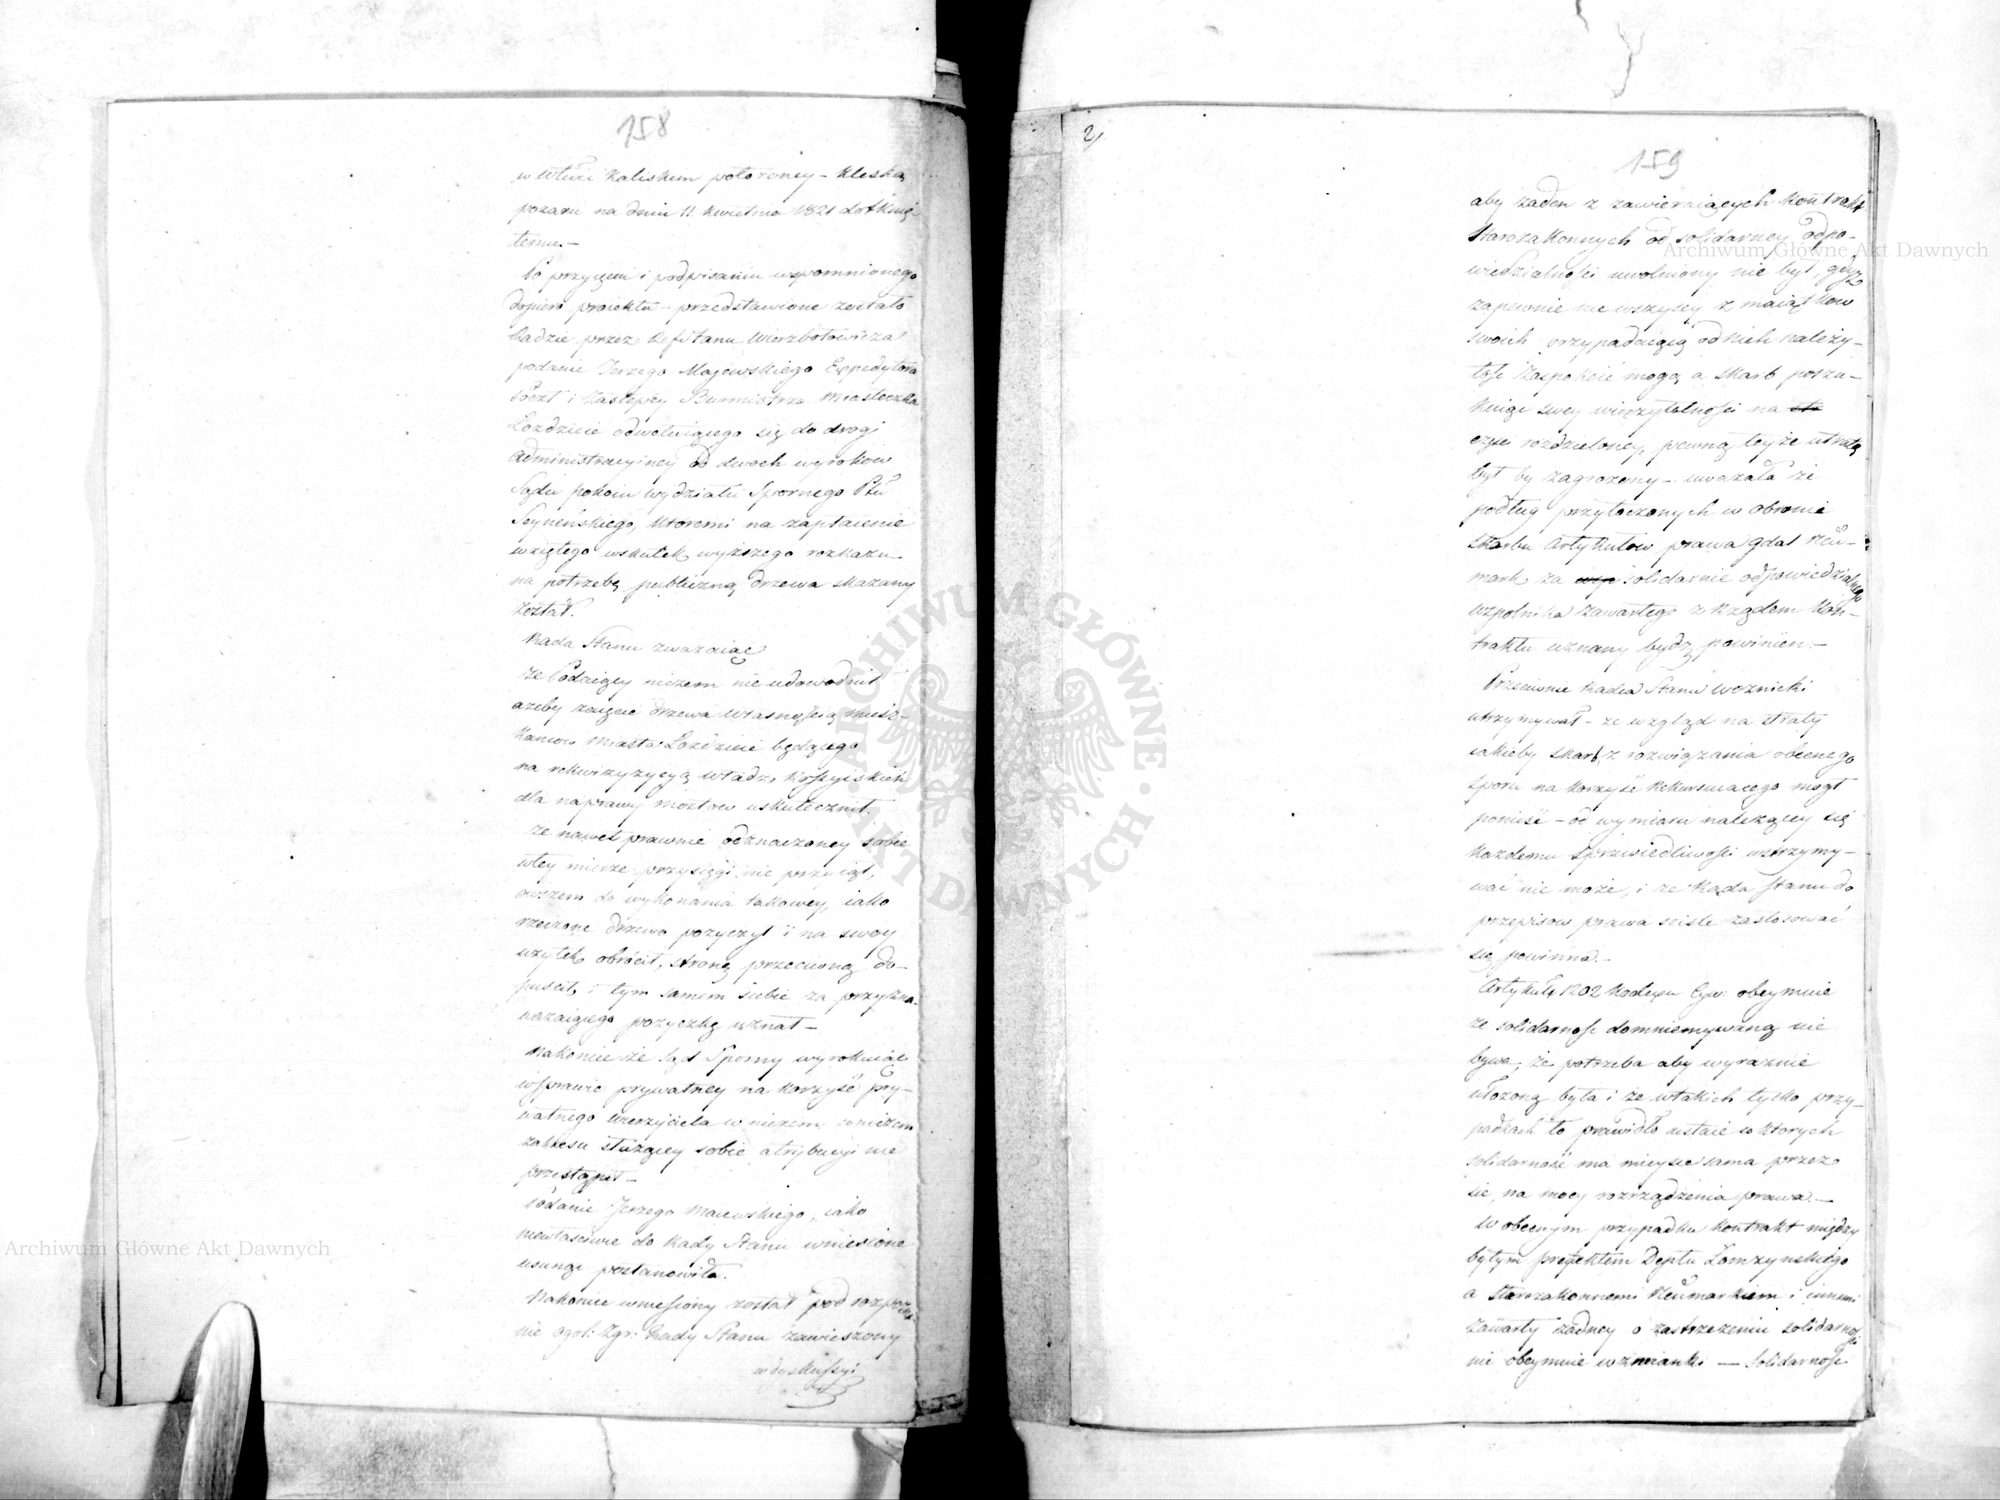 158
w Wtwie Kaliskim położoney – klęską
pożaru na dniu 11. Kwietnia 1821 dotknię-
temu. –
Po przyięciu i podpisaniu wspomnionego
dopiero proiektu – przedstawione zostało
Radzie przez Refftanu Wierzbołowicza
podanie Jerzego Majewskiego Expedytora
Poczt i Zastępcy Burmistrza Miasteczka
Łoździeie odwołuiącego się do drogi
administracyiney od dwoch wyrokow
Sądu pokoiu wydziału Spornego Ptu
Seyneńskiego, któremi na zapłacenie
wziętego wskutek wyższego rozkazu
na potrzebę publiczną drzewa skazany
został.
Rada Stanu zważaiąc
że Podaiący niczem nie udowodnił
ażeby zaięcie drzewa własnością miesz-
kancow Miasta Łoździeie będącego
na rekwizycyą władz Rossyiskich
dla naprawy mostow uskutecznił.
że nawet prawnie odznaczoney sobie
wtey mierze przysięgi nie przyiął,
owszem do wykonania takowey, iako
rzeczone drzewo pożyczył i na swoy
użytek obrócił, stronę przeciwną do-
puścił, i tym samem siebie za przyzna-
waiącego pożyczkę uznał –
Nakoniec że Sąd Sporny wyrokuiąc
w sprawie prywatney na korzyść pry-
watnego wierzyciela w niczem
zakresu służącey sobie atrybucyi nie
przestąpił –
Podanie Jerzego Maiewskiego, iako
niewłaściwie do Rady Stanu wniesione
usunąć postanowiła.
Nakoniec wniesiony został pod rozpozna-
nie ogól: Zgr: Rady Stanu zawieszony
w dyskussyi
2/
159
aby żaden z zawieraiących kontrakt
Starozakonnych od solidarney odpo-
wiedzialności uwolniony nie był, gdyż
zapewnie nie wszyscy z maiątkow
swoich przypadaiącą od nich należy-
tość zaspokoić mogą a Skarb poszu-
kuiąc swey wierzytelności na
czyli rozdzieloney, pewną teyże utratą
był by zagrożony – uważała że
podług przytoczonych w obronie
Skarbu Artykułow prawa gdał Neu-
mark za solidarnie odpowiedzialnego
wspolnika zawartego z Rządem Kon-
traktu uznany bydź powinien. –
Przeciwnie Radca Stanu Woznicki
utrzymywał – że wzgląd na straty
iakieby Skarb z rozwiązania obecnego
sporu na korzyść Rekursuiącego mogł
ponieść – od wymiaru należącey się
każdemu Sprawiedliwości wstrzymy-
wać nie może, i że Rada Stanu do
przepisow prawa ściśle zastosować
się powinna. –
Artykuł 1202 Kodexu Cyw: obeymuie
że solidarność domniemywaną nie
bywa, że potrzeba aby wyraznie
ułożoną była i że wtakich tylko przy-
padkach to prawidło ustaie wktorych
solidarność ma mieysce sama przez
się, na mocy rozrządzenia prawa. –
W obecnym przypadku kontrakt między
byłym prefektem Deptu Łomżynskiego
a Starozakonnemi Neumarkiem i innemi
zawarty żadney o zastrzeżeniu solidarności
nie obeymuie wzmianki — Solidarność
Archiwum Główne Akt Dawnych
Archiwum Główne Akt Dawnych
ARCHIWUM GŁÓWNE · AKT DAWNYCH ·